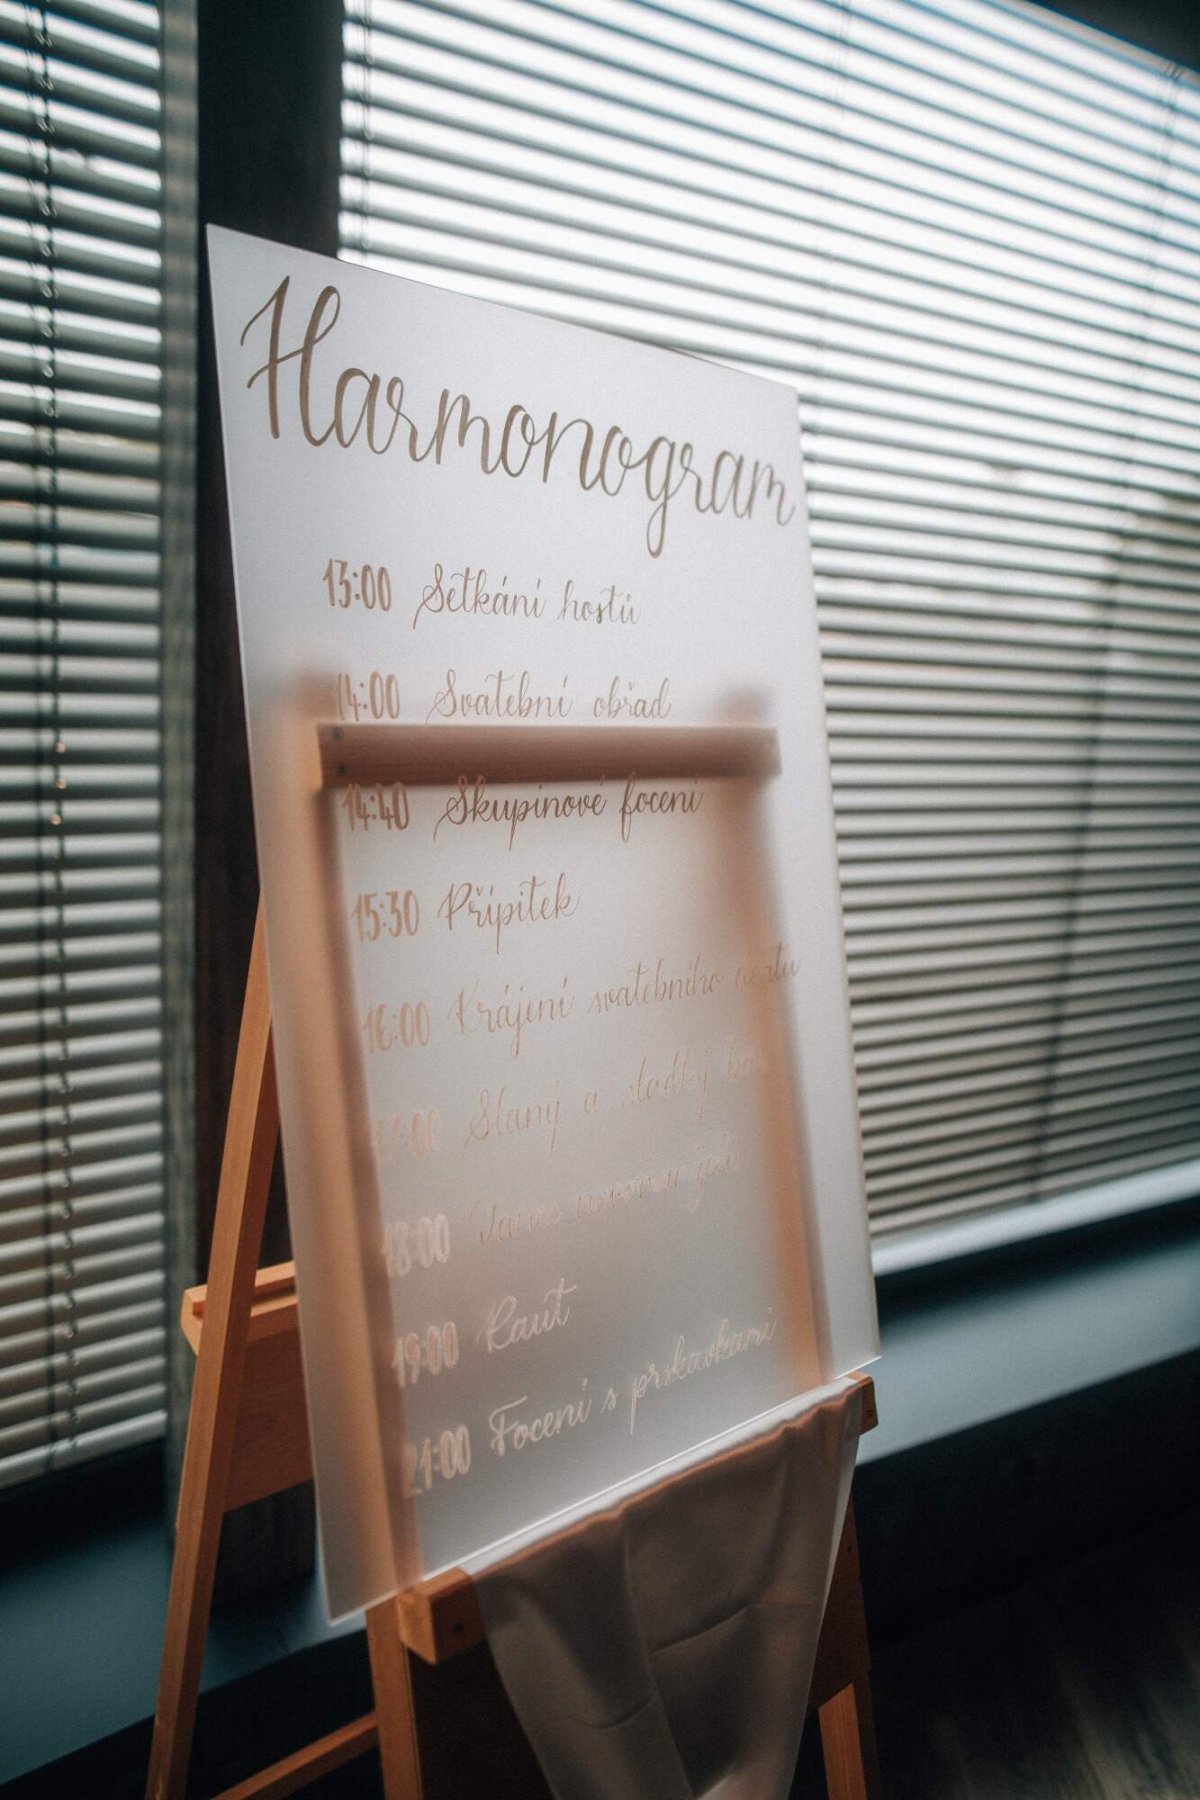 Harmonogram
13:00 Setkání hostů
14:00 Svatební obřad
14:40 Skupinové focení
15:30 Přípitek
16:00 Krájení svatebního dortu
Slaný a sladký bar
18:00 Tanec novomanželů
19:00 Raut
21:00 Focení s prskavkami